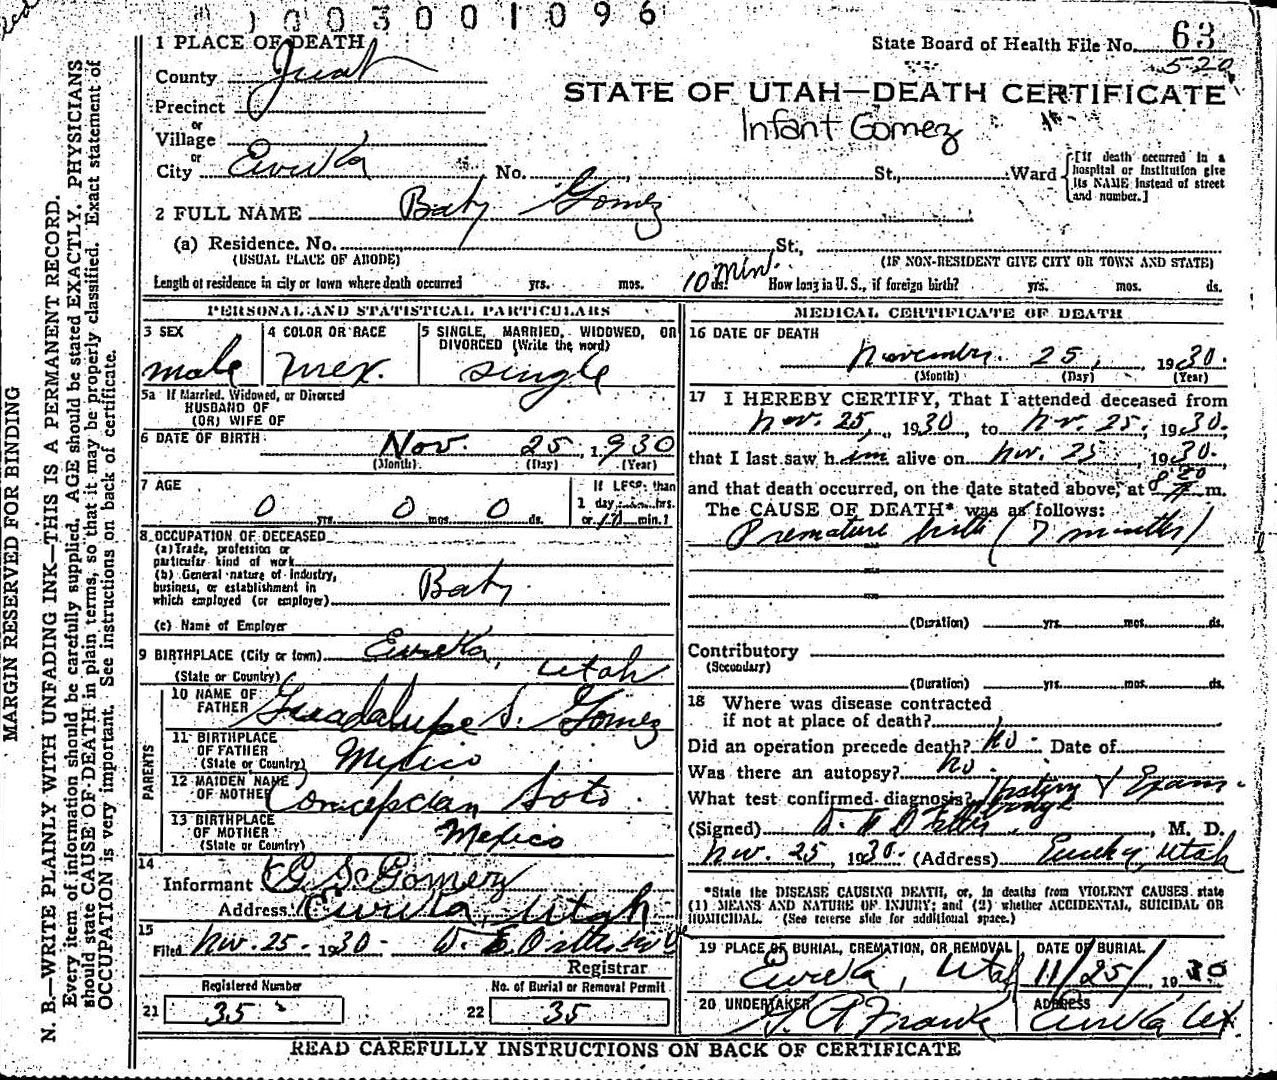 003001096
State Board of Health File No. 63
520
STATE OF UTAH—DEATH CERTIFICATE
Infant Gomez
1 PLACE OF DEATH
County Juab
Precinct
or
Village
or
City Eureka No. St., Ward
[If death occurred in a
hospital or institution give
its NAME instead of street
and number.]
2 FULL NAME Baby Gomez
(a) Residence. No. St.,
(USUAL PLACE OF ABODE) (IF NON-RESIDENT GIVE CITY OR TOWN AND STATE)
Length of residence in city or town where death occurred yrs. mos. 10 min. ds. How long in U. S., if foreign birth? yrs. mos. ds.
PERSONAL AND STATISTICAL PARTICULARS
3 SEX
male
4 COLOR OR RACE
mex.
5 SINGLE, MARRIED, WIDOWED, OR
DIVORCED (Write the word)
single
5a If Married, Widowed, or Divorced
HUSBAND OF
(OR) WIFE OF
6 DATE OF BIRTH Nov. 25, 1930
(Month) (Day) (Year)
7 AGE
0 yrs. 0 mos. 0 ds.
If LESS than
1 day hrs.
or min.?
8 OCCUPATION OF DECEASED
(a) Trade, profession or
particular kind of work
(b) General nature of industry,
business, or establishment in
which employed (or employer) Baby
(c) Name of Employer
9 BIRTHPLACE (City or town) Eureka,
(State or Country) Utah
PARENTS
10 NAME OF
FATHER Guadalupe S. Gomez
11 BIRTHPLACE
OF FATHER
(State or Country) Mexico
12 MAIDEN NAME
OF MOTHER Concepcion Soto
13 BIRTHPLACE
OF MOTHER
(State or Country) Mexico
14
Informant G. S. Gomez
Address Eureka, Utah
15
Filed Nov. 25 1930.
Registrar
Registered Number
21 35
No. of Burial or Removal Permit
22 35
MEDICAL CERTIFICATE OF DEATH
16 DATE OF DEATH
November 25, 1930.
(Month) (Day) (Year)
17 I HEREBY CERTIFY, That I attended deceased from
Nov. 25, 1930, to Nov. 25, 1930.
that I last saw him alive on Nov. 25, 1930.
and that death occurred, on the date stated above, at 8 20 m.
The CAUSE OF DEATH* was as follows:
Premature birth (7 months)
(Duration) yrs. mos. ds.
Contributory
(Secondary)
(Duration) yrs. mos. ds.
18 Where was disease contracted
if not at place of death?
Did an operation precede death? No. Date of
Was there an autopsy? No.
What test confirmed diagnosis? History & Exam.
(Signed) , M. D.
Nov. 25, 1930. (Address) Eureka, Utah
*State the DISEASE CAUSING DEATH, or, in deaths from VIOLENT CAUSES, state
(1) MEANS AND NATURE OF INJURY; and (2) whether ACCIDENTAL, SUICIDAL OR
HOMICIDAL. (See reverse side for additional space.)
19 PLACE OF BURIAL, CREMATION, OR REMOVAL
Eureka, Utah
DATE OF BURIAL
11/25/, 1930
20 UNDERTAKER
ADDRESS
Eureka Ut.
READ CAREFULLY INSTRUCTIONS ON BACK OF CERTIFICATE
MARGIN RESERVED FOR BINDING
N. B.—WRITE PLAINLY WITH UNFADING INK—THIS IS A PERMANENT RECORD.
Every item of information should be carefully supplied. AGE should be stated EXACTLY. PHYSICIANS
should state CAUSE OF DEATH in plain terms, so that it may be properly classified. Exact statement of
OCCUPATION is very important. See instructions on back of certificate.